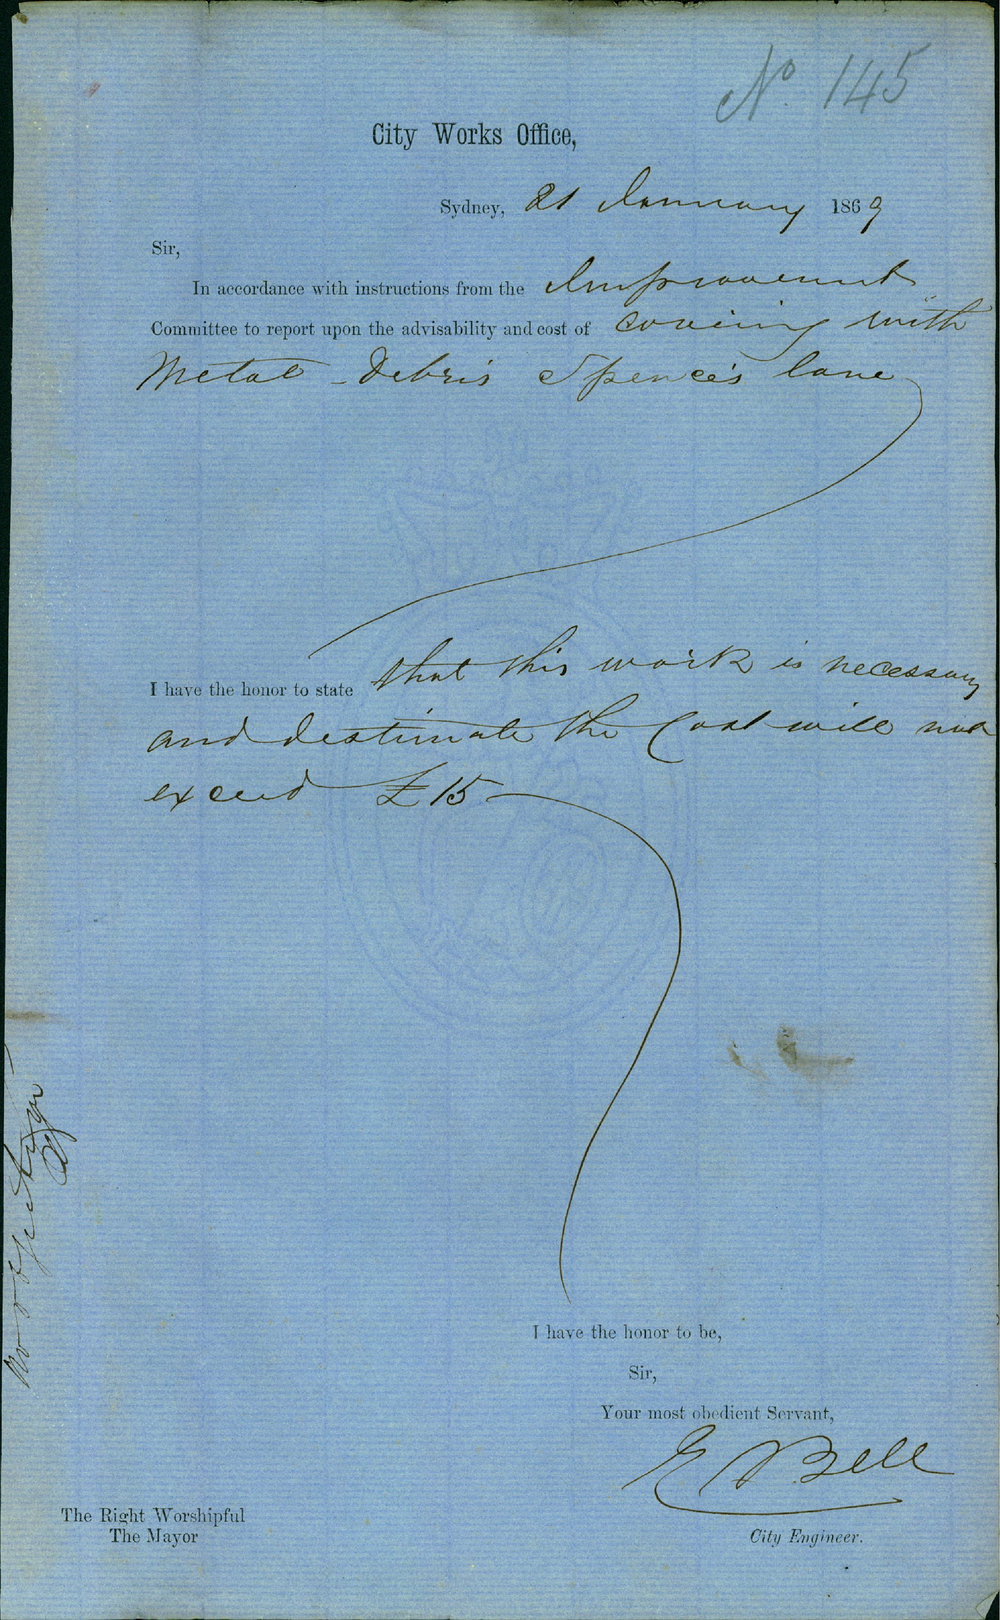 No. 145
City Works Office,
Sydney, 21 January 1869
Sir,
In accordance with instructions from the Improvement
Committee to report upon the advisability and cost of covering with
Metal - Debris Spence's lane
I have the honor to state that this work is necessary
and I estimate the Cost will not
exceed £15
I have the honor to be,
Sir,
Your most obedient Servant,
E Bell
City Engineer.
The Right Worshipful
The Mayor
No objection